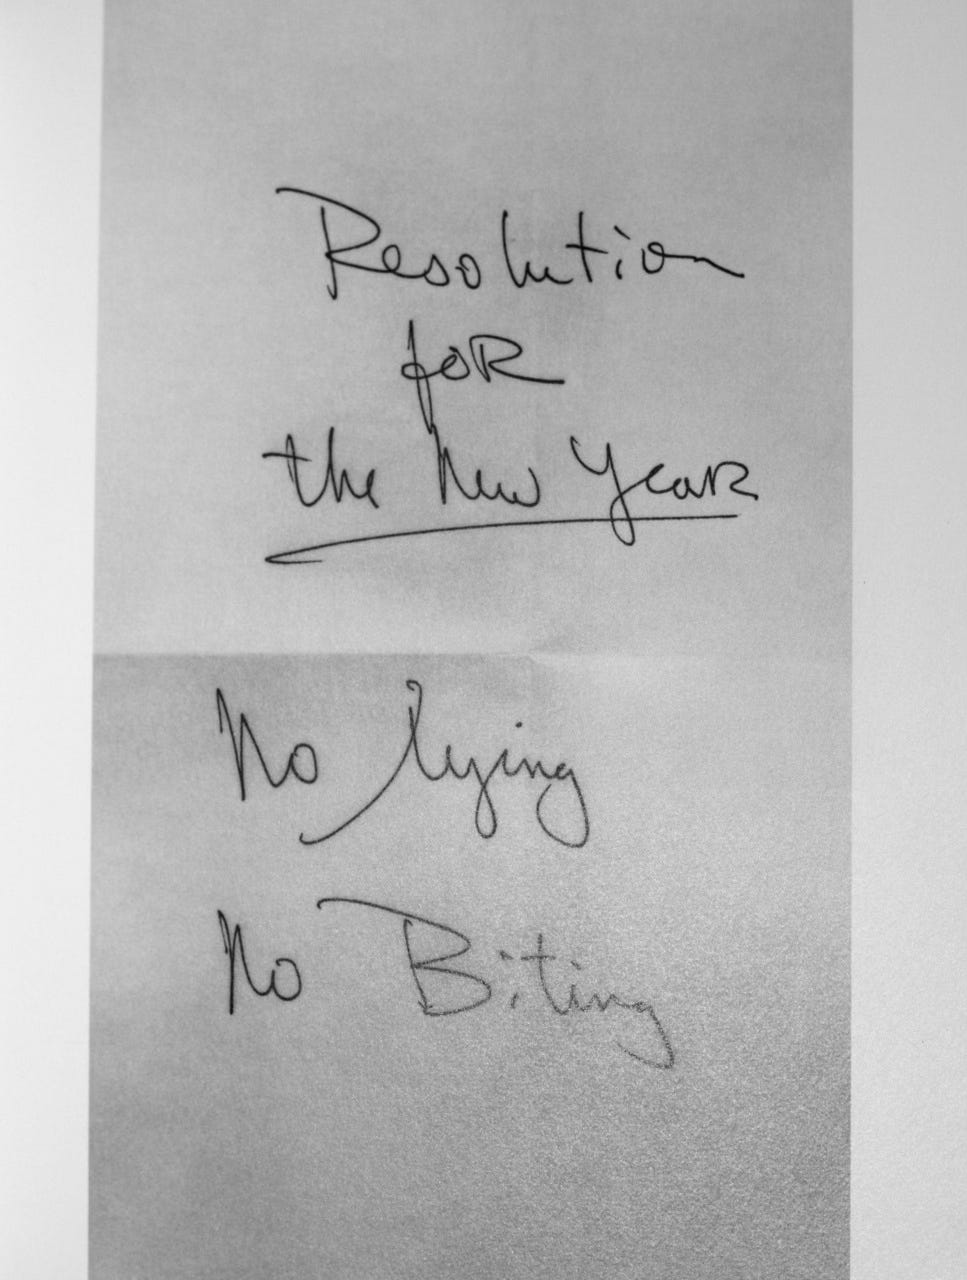 Resolution
foR
the New Year
No lying
No Biting